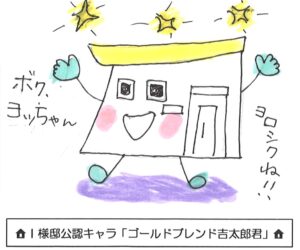 ボク、
ヨッちゃん
ヨロシクね!!
I様邸公認キャラ「ゴールドブレンド吉太郎君」